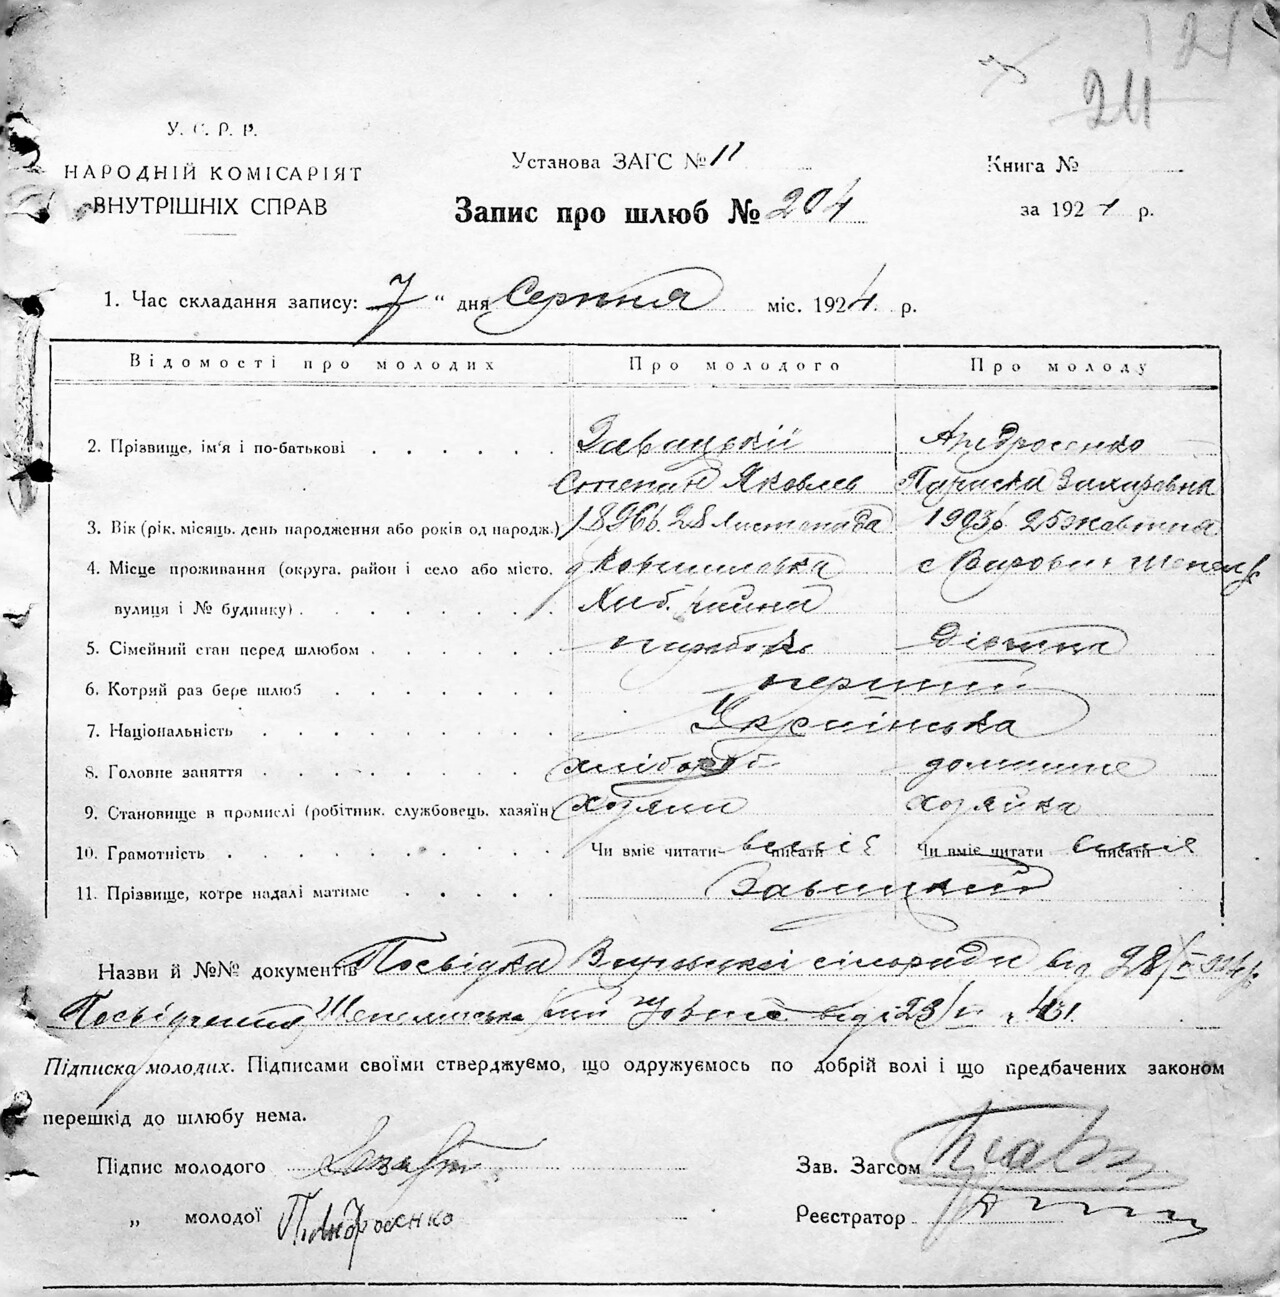 24
У. С. Р. Р.
НАРОДНІЙ КОМІСАРІЯТ
ВНУТРІШНІХ СПРАВ
Установа ЗАГС № 11
Запис про шлюб № 204
Книга №
за 1924 р.
1. Час складання запису: 7 " дня Серпня міс. 1924 р.
Відомості про молодих Про молодого Про молоду
2. Прізвище, ім'я і по-батькові Завацький Андросенко
Степан Яковлев Параска Захаровна
3. Вік (рік, місяць, день народження або років од народж.) 1896 28 Листопада 1903 25 жовтня
4. Місце проживання (округа, район і село або місто,
вулиця і № будинку)
5. Сімейний стан перед шлюбом парубок Дівчина
6. Котрий раз бере шлюб перший
7. Національність Українська
8. Головне заняття хлібороб домашнє
9. Становище в промислі (робітник, службовець, хазяїн) хозяин хозяйка
10. Грамотність Чи вміє читати писати Чи вміє читати писати
11. Прізвище, котре надалі матиме Завацкий
Назви й №№ документів Посвідка сільради від 28
Посвідчення від 23
Підписка молодих. Підписами своїми стверджуємо, що одружуємось по добрій волі і що предбачених законом
перешкід до шлюбу нема.
Підпис молодого
Зав. Загсом
„ молодої П. Андросенко
Реєстратор